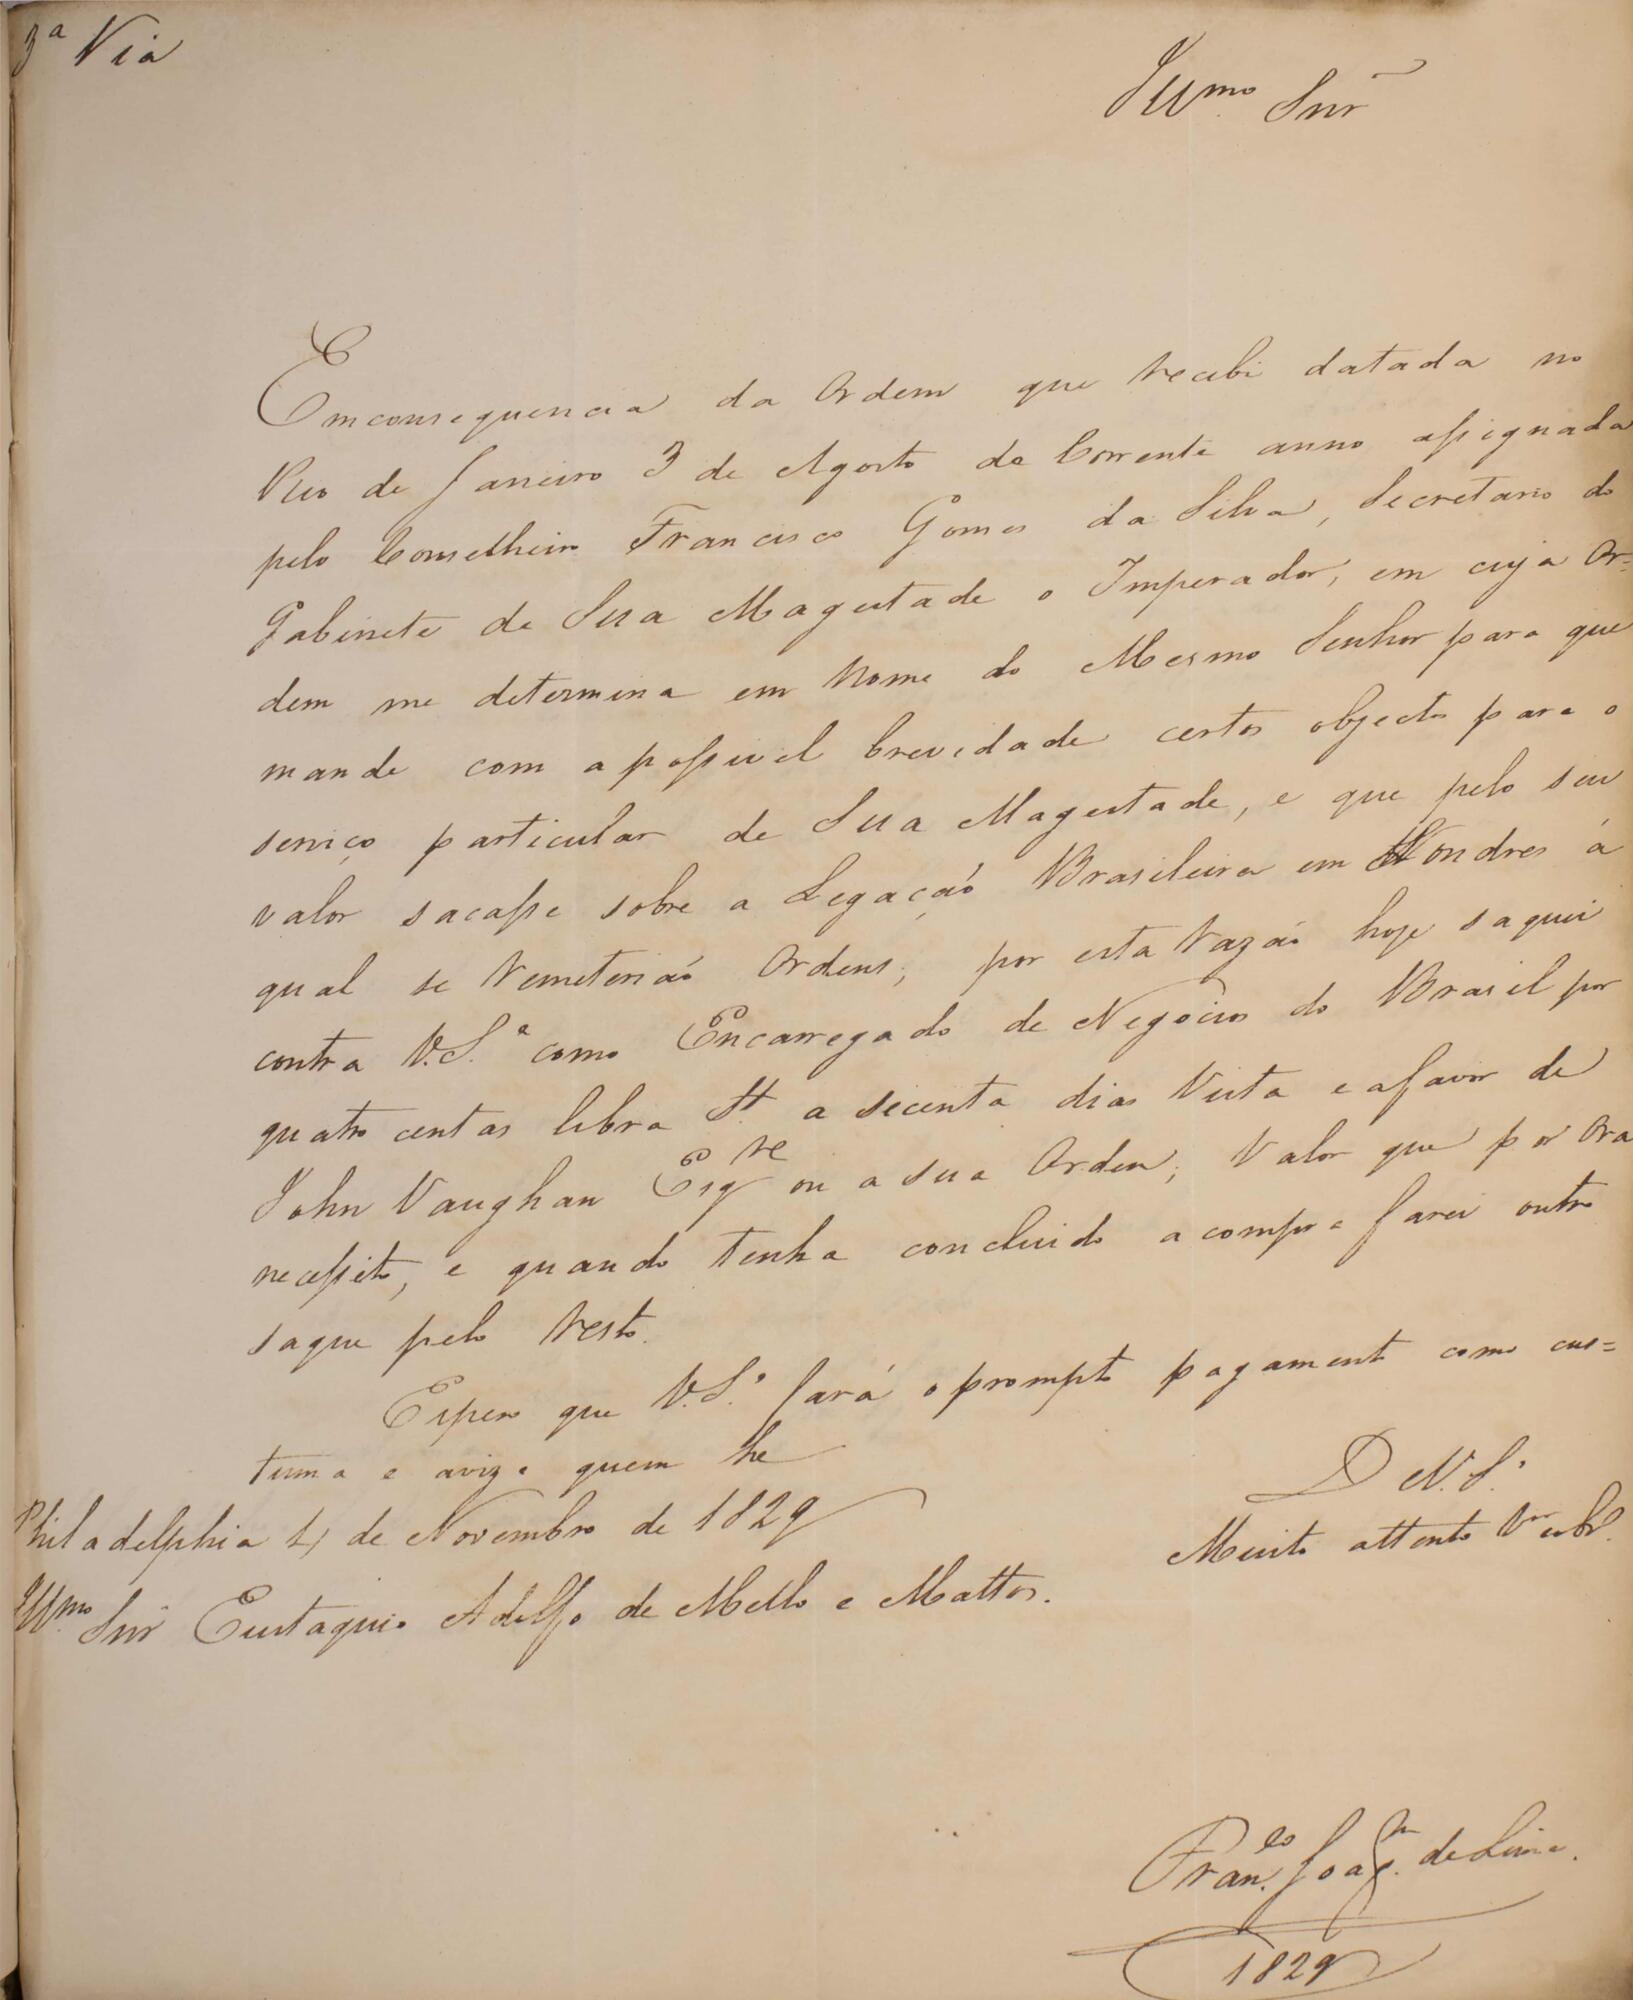 3ª Via
Illmo Snr
Emconsequencia da Ordem que recebi datada no
Rio de Janeiro 3 de Agosto do Corrente anno assignada
pelo Conselheiro Francisco Gomes da Silva, Secretario do
Gabinete de Sua Magestade o Imperador, em cuja Or=
dem me determina em nome do Mesmo Senhor para que
mande com a possivel brevidade certos objectos para o
serviço particular de Sua Magestade, e que pelo seu
valor sacasse sobre a Legação Brasileira em Londres á
qual se remeterião Ordens, por esta razão hoje saquei
contra V.S.ª como Encarregado de Negocios do Brasil por
quatro centas libra St. a secenta dias Vista e afavor de
John Vaughan Esqre ou a sua Ordem, Valor que por Ora
necessito, e quando tenha concluido a compra farei outro
saque pelo resto.
Espero que V.S.ª fará o prompto pagamento como cus=
tuma e avize quem he
D V.S.ª
Philadelphia 4 de Novembro de 1829
Muito attento
Illmo Snr Eustaquio Adolfo de Mello e Mattos.
Franco Joaqm de Lima.
1829